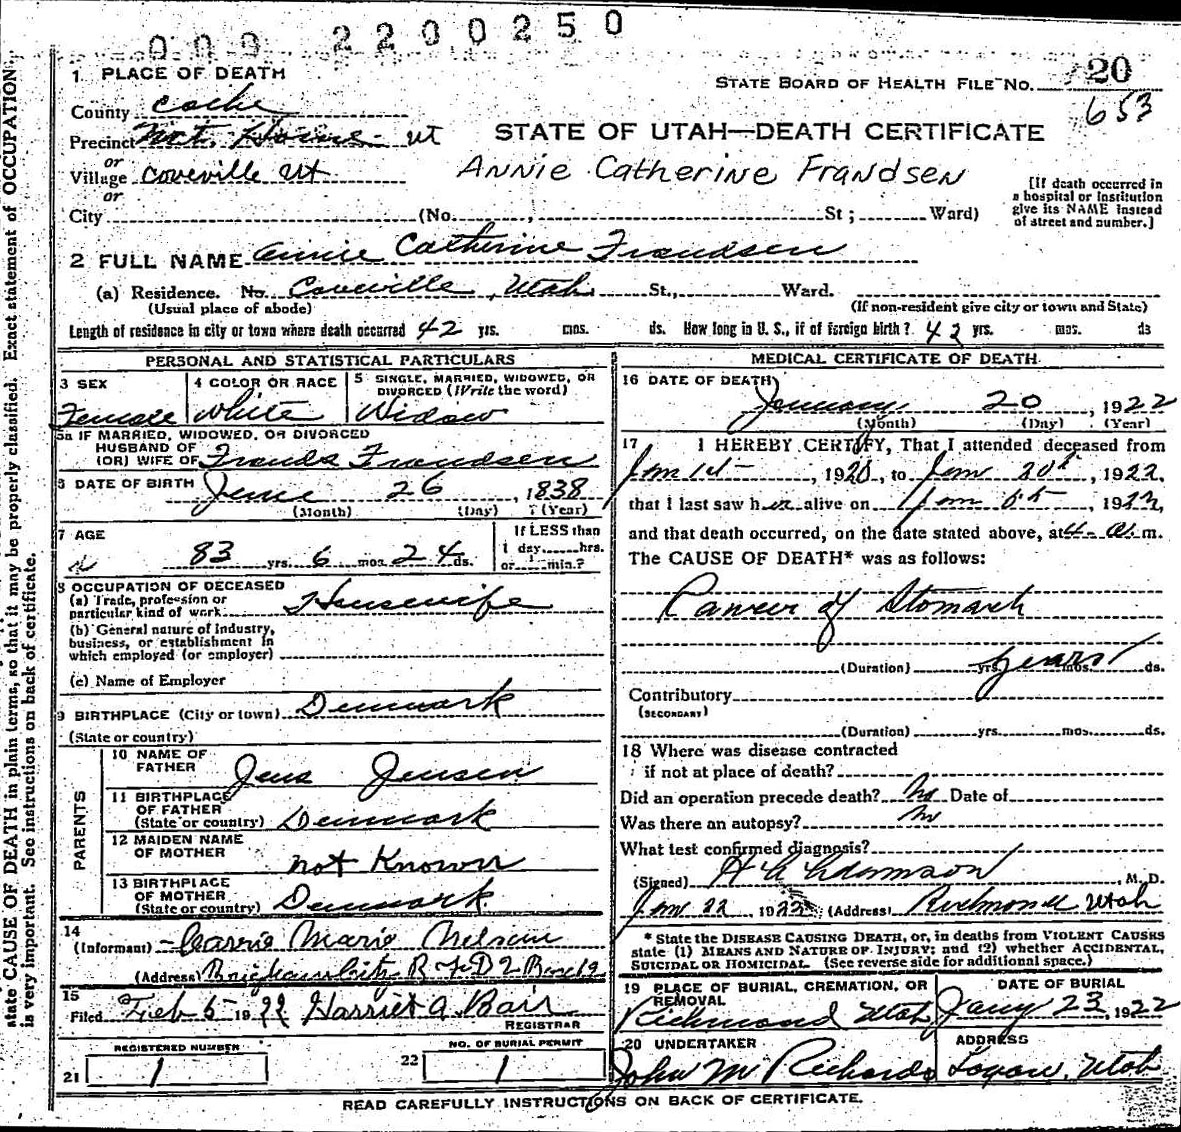 009 2200250
1 PLACE OF DEATH
STATE BOARD OF HEALTH FILE No. 20
653
County Cache
Precinct Mt. Home Ut
or
Village Coveville Ut
or
STATE OF UTAH—DEATH CERTIFICATE
Annie Catherine Frandsen
[If death occurred in
a hospital or institution
give its NAME instead
of street and number.]
City (No. , St ; Ward)
2 FULL NAME Annie Catherine Frandsen
(a) Residence. No. Coveville, Utah. St., Ward.
(Usual place of abode) (If non-resident give city or town and State)
Length of residence in city or town where death occurred 42 yrs. mos. ds. How long in U. S., if of foreign birth? 42 yrs. mos. ds
PERSONAL AND STATISTICAL PARTICULARS
3 SEX
Female
4 COLOR OR RACE
White
5 SINGLE, MARRIED, WIDOWED, OR
DIVORCED (Write the word)
Widow
5a IF MARRIED, WIDOWED, OR DIVORCED
HUSBAND OF
(OR) WIFE OF Frands Frandsen
6 DATE OF BIRTH June 26, 1838
(Month) (Day) (Year)
7 AGE
83 yrs. 6 mos. 24 ds.
If LESS than
1 day hrs.
or min.?
8 OCCUPATION OF DECEASED
(a) Trade, profession or
particular kind of work Housewife
(b) General nature of industry,
business, or establishment in
which employed (or employer)
(c) Name of Employer
9 BIRTHPLACE (City or town) Denmark
(State or country)
PARENTS
10 NAME OF
FATHER Jens Jensen
11 BIRTHPLACE
OF FATHER
(State or country) Denmark
12 MAIDEN NAME
OF MOTHER not Known
13 BIRTHPLACE
OF MOTHER
(State or country) Denmark
14
(Informant) Carrie Marie Nelson
(Address) Brigham City R F D 2 Box 19
15
Filed Feb 5 1922 Harriet A Bair
REGISTRAR
REGISTERED NUMBER
21 1
NO. OF BURIAL PERMIT
22 1
MEDICAL CERTIFICATE OF DEATH
16 DATE OF DEATH
January 20, 1922
(Month) (Day) (Year)
17 I HEREBY CERTIFY, That I attended deceased from
Jan 1st, 1920, to Jan 20th, 1922,
that I last saw her alive on Jan , 1922,
and that death occurred, on the date stated above, at 4 a. m.
The CAUSE OF DEATH* was as follows:
Cancer of Stomach
(Duration) yrs. years mos. ds.
Contributory
(SECONDARY)
(Duration) yrs. mos. ds.
18 Where was disease contracted
if not at place of death?
Did an operation precede death? No Date of
Was there an autopsy? No
What test confirmed diagnosis?
(Signed) Adamson M. D.
Jan 22 1922 (Address) Richmond Utah
* State the DISEASE CAUSING DEATH, or, in deaths from VIOLENT CAUSES
state (1) MEANS AND NATURE OF INJURY; and (2) whether ACCIDENTAL,
SUICIDAL OR HOMICIDAL. (See reverse side for additional space.)
19 PLACE OF BURIAL, CREMATION, OR
REMOVAL
Richmond Utah
DATE OF BURIAL
Jany 23, 1922
20 UNDERTAKER
John M Richards
ADDRESS
Logan, Utah
READ CAREFULLY INSTRUCTIONS ON BACK OF CERTIFICATE.
state CAUSE OF DEATH in plain terms, so that it may be properly classified. Exact statement of OCCUPATION
is very important. See instructions on back of certificate.